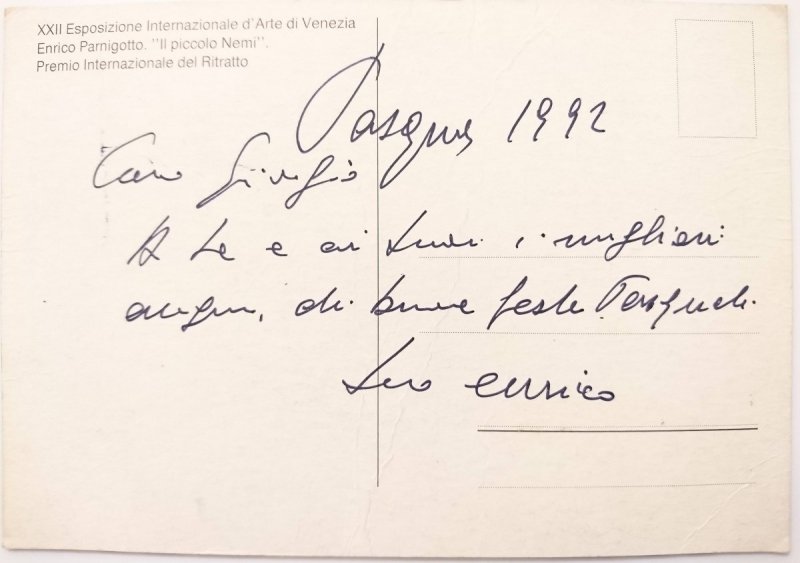 XXII Esposizione Internazionale d'Arte di Venezia
Enrico Parnigotto. "Il piccolo Nemi".
Premio Internazionale del Ritratto
Pasqua 1992
Caro Giorgio
A te e ai tuoi i migliori
auguri di buone feste Pasquali.
tuo enrico